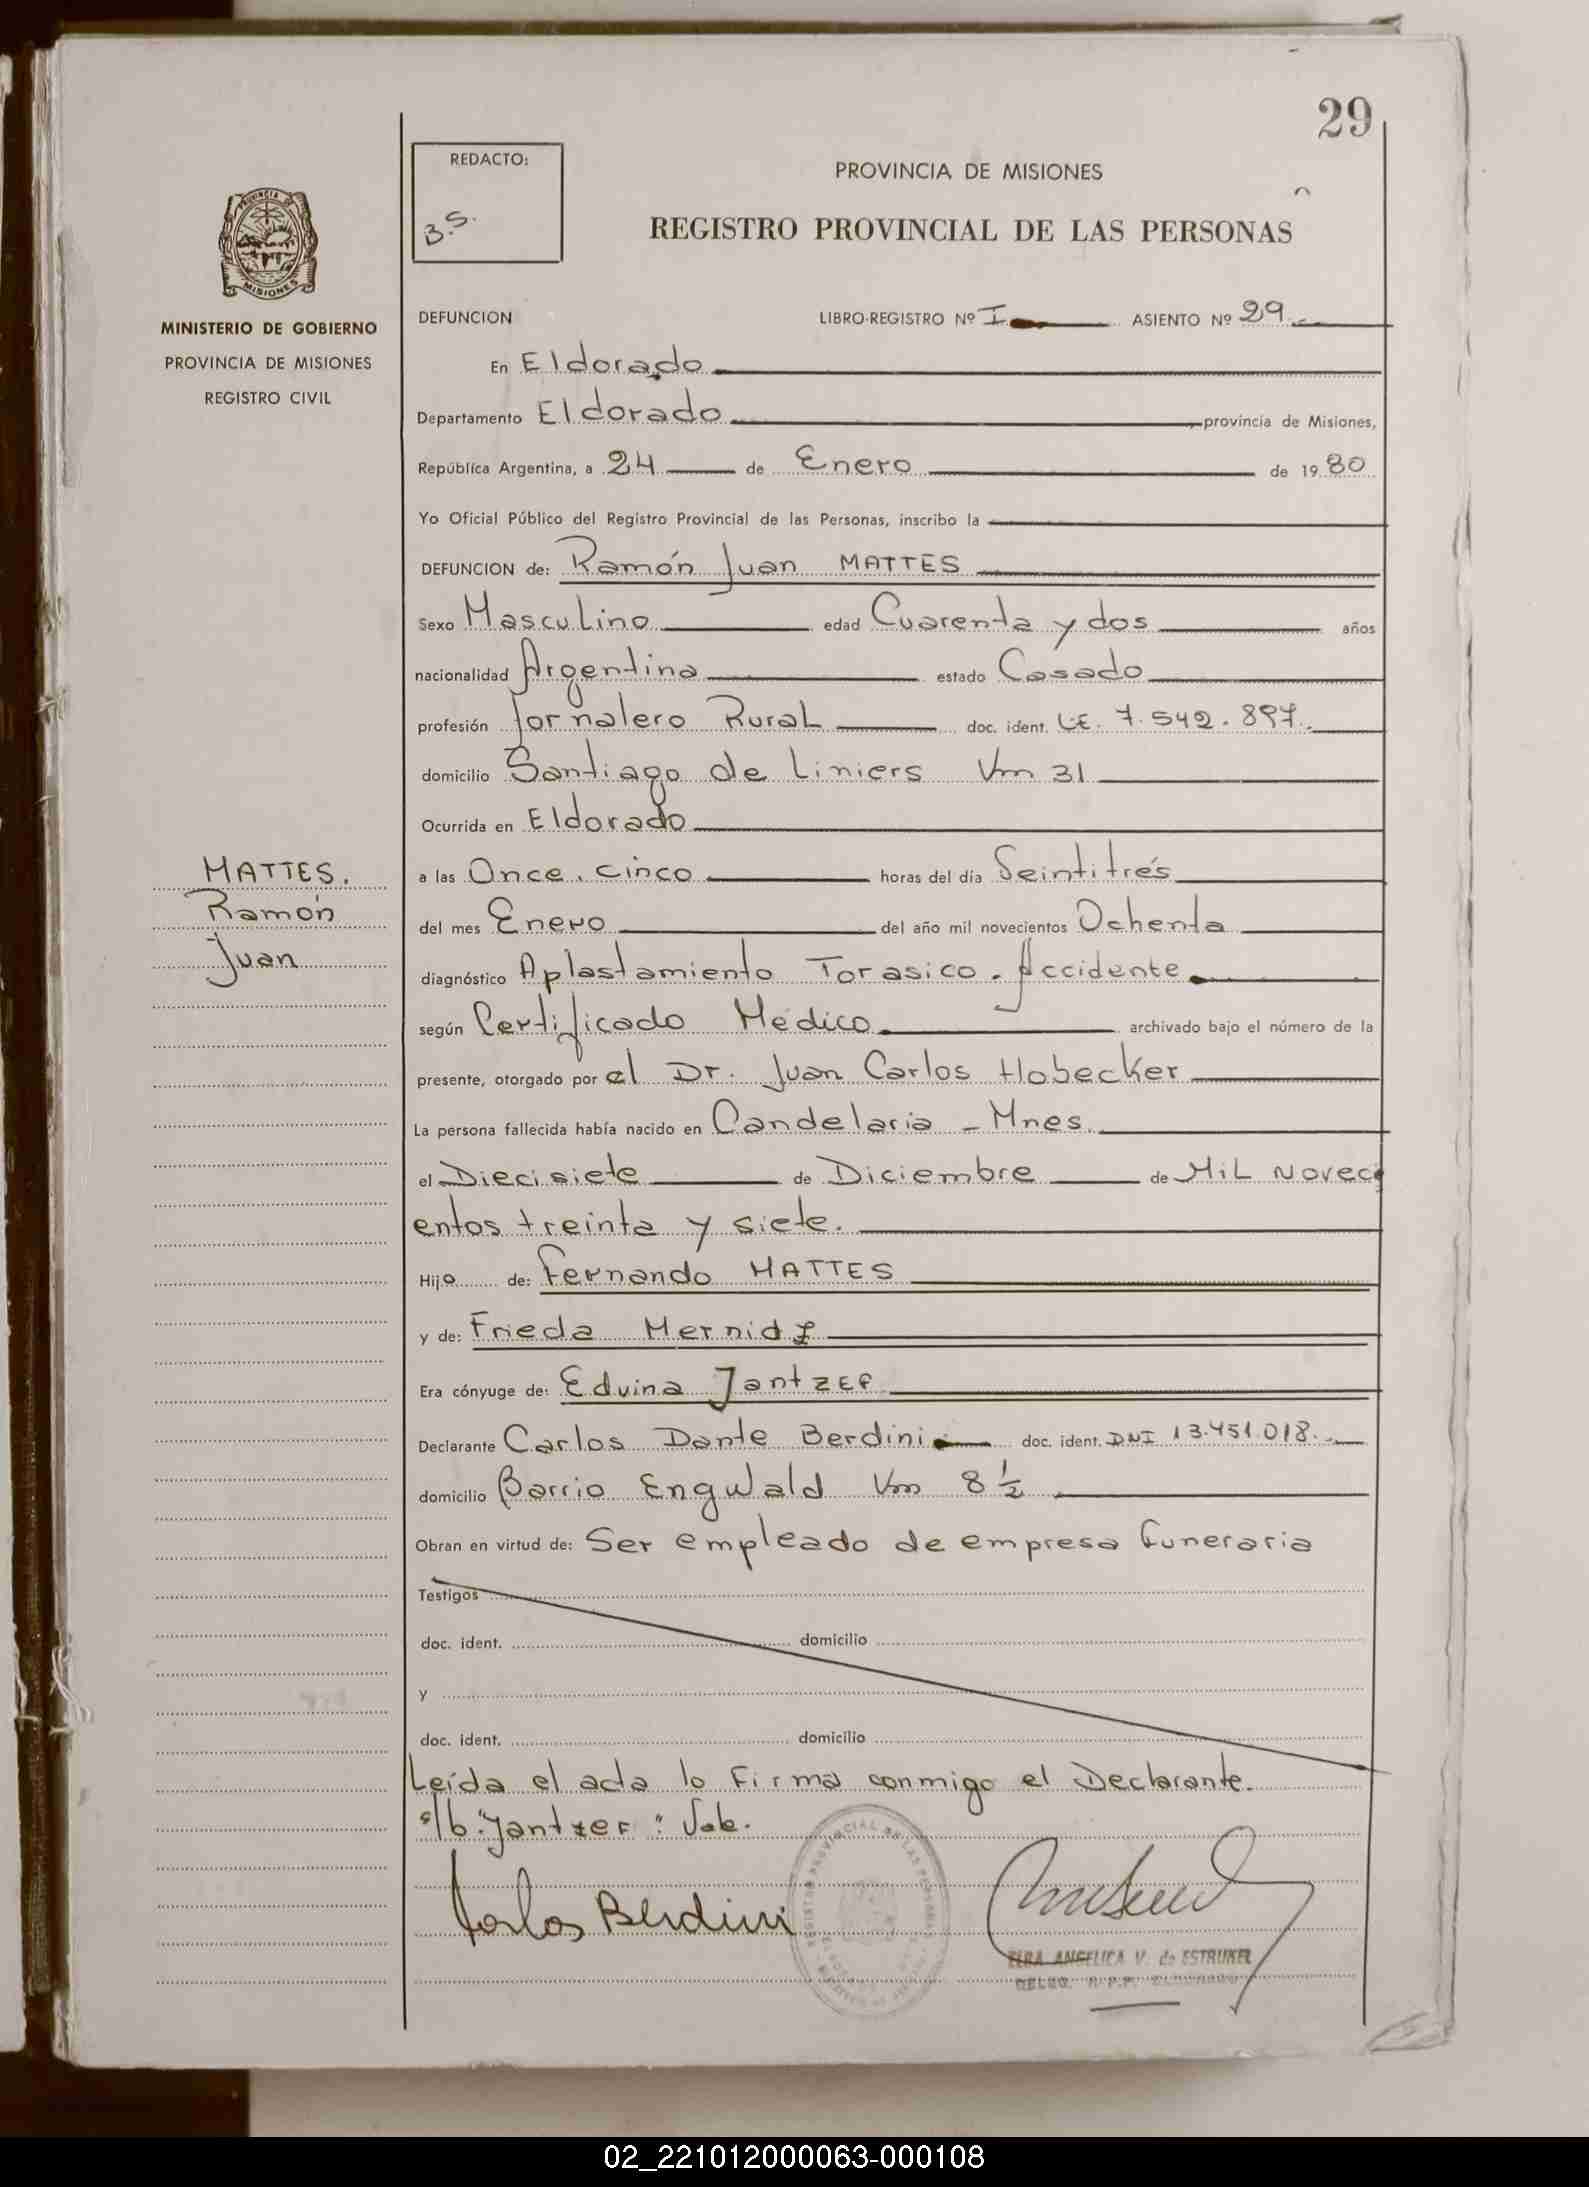 29
REDACTO:
B.S.
PROVINCIA DE MISIONES
REGISTRO PROVINCIAL DE LAS PERSONAS
PROVINCIA DE
MISIONES
MINISTERIO DE GOBIERNO
PROVINCIA DE MISIONES
REGISTRO CIVIL
DEFUNCION LIBRO-REGISTRO Nº I ASIENTO Nº 29
En Eldorado
Departamento Eldorado, provincia de Misiones,
República Argentina, a 24 de Enero de 1980
Yo Oficial Público del Registro Provincial de las Personas, inscribo la
DEFUNCION de: Ramón Juan MATTES
Sexo Masculino edad Cuarenta y dos años
nacionalidad Argentina estado Casado
profesión Jornalero Rural doc. ident. L.E. 7.542.897.
domicilio Santiago de Liniers Km 31
Ocurrida en Eldorado
MATTES.
Ramón
Juan
a las Once, cinco horas del día Veintitrés
del mes Enero del año mil novecientos Ochenta
diagnóstico Aplastamiento Torasico. Accidente
según Certificado Médico archivado bajo el número de la
presente, otorgado por el Dr. Juan Carlos Hobecker
La persona fallecida había nacido en Candelaria - Mnes.
el Diecisiete de Diciembre de Mil Noveci
entos treinta y siete.
Hijo de: Fernando MATTES
y de: Frieda Mernidz
Era cónyuge de: Edvina Jantzer
Declarante Carlos Dante Berdini doc. ident. DNI 13.451.018.
domicilio Barrio Engwald Km 8 ½
Obran en virtud de: Ser empleado de empresa funeraria
Testigos
doc. ident. domicilio
y
doc. ident. domicilio
Leída el acta lo firma conmigo el Declarante.
s/b: "Jantzer": Vale.
Carlos Berdini
ELBA ANGELICA V. de ESTRUKEL
DELEG. R.P.P. ELDORADO
02_221012000063-000108